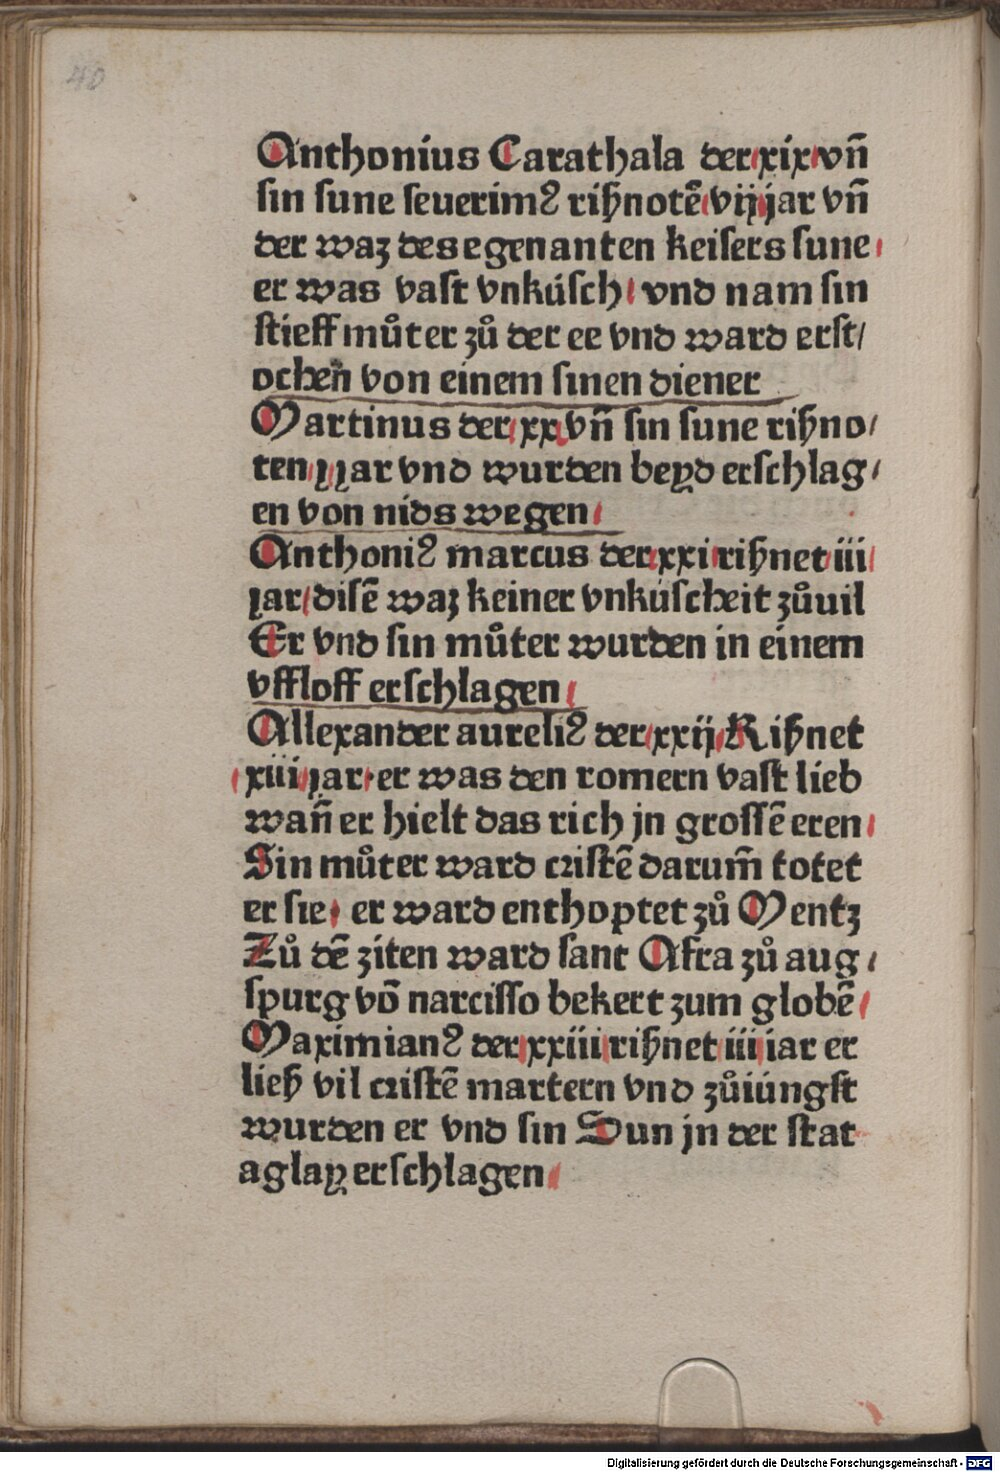 40
Anthonius Carathala der xix vn̄
sin sune seuerimꝰ rihnotē vij jar vn̄
der waz des egenanten keisers sune
er was vast vnkúsch vnd nam sin
stieff můter zů der ee vnd ward erst/
ochen̄ von einem sinen diener
Martinus der xx vn̄ sin sune rihno/
ten j jar vnd wurden beyd erschlag/
en von nids wegen
Anthoniꝰ marcus der xxi rihnet iii
jar disē waz keiner vnkúscheit zůuil
Er vnd sin můter wurden in einem
vffloff erschlagen
Allexander aureliꝰ der xxij Rihnet
xiii jar er was den romern vast lieb
wan̄ er hielt das rich jn grossē eren
Sin můter ward cristē darum̄ totet
er sie er ward enthoptet zů Mentz
Zů dē ziten ward sant Afra zů aug/
spurg vō narcisso bekert zum globē
Maximianꝰ der xxiii rihnet iii iar er
lieh vil cristē martern vnd zůiúngst
wurden er vnd sin Sun jn der stat
aglay erschlagen
Digitalisierung gefördert durch die Deutsche Forschungsgemeinschaft - DFG